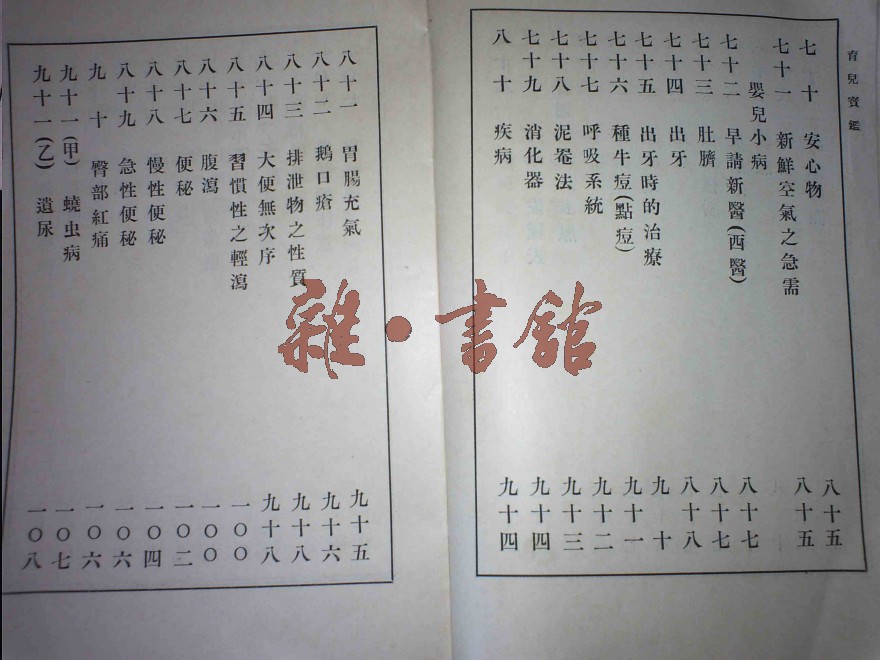 育兒寶鑑
七十 安心物 八十五
七十一 新鮮空氣之急需 八十五
嬰兒小病
七十二 早請新醫(西醫) 八十七
七十三 肚臍 八十七
七十四 出牙 八十八
七十五 出牙時的治療 九十
七十六 種牛痘(點痘) 九十一
七十七 呼吸系統 九十二
七十八 泥罨法 九十三
七十九 消化器 九十四
八十 疾病 九十四
八十一 胃腸充氣 九十五
八十二 鵝口瘡 九十六
八十三 排泄物之性質 九十八
八十四 大便無次序 九十八
八十五 習慣性之輕瀉 一〇〇
八十六 腹瀉 一〇〇
八十七 便秘 一〇二
八十八 慢性便秘 一〇四
八十九 急性便秘 一〇六
九十 臀部紅痛 一〇六
九十一(甲) 蟯虫病 一〇七
九十一(乙) 遺尿 一〇八
雜·書館